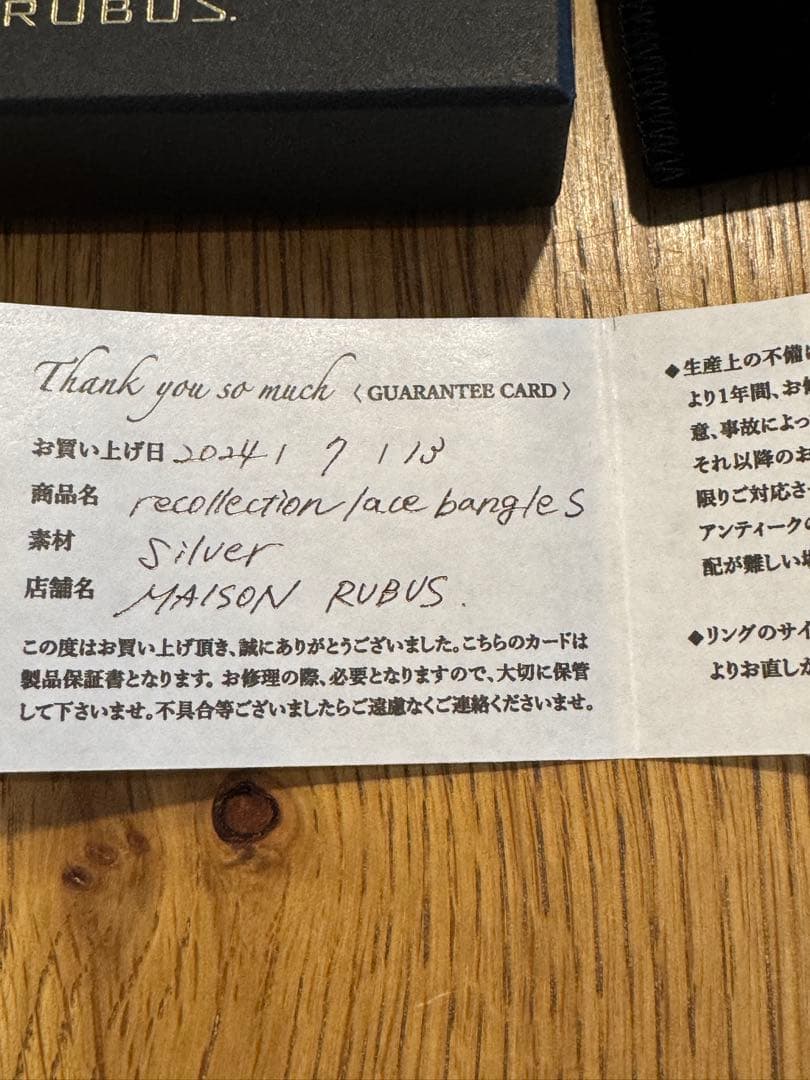 RUBUS.
Thank you so much 〈 GUARANTEE CARD 〉
お買い上げ日 2024 / 7 / 13
商品名 recollection lace bangle S
素材 silver
店舗名 MAISON RUBUS.
この度はお買い上げ頂き、誠にありがとうございました。こちらのカードは
製品保証書となります。お修理の際、必要となりますので、大切に保管
して下さいませ。不具合等ございましたらご遠慮なくご連絡くださいませ。
◆生産上の不備に
より1年間、お修
意、事故によっ
それ以降のお
限りご対応させ
アンティークの
配が難しい場
◆リングのサイ
よりお直しか